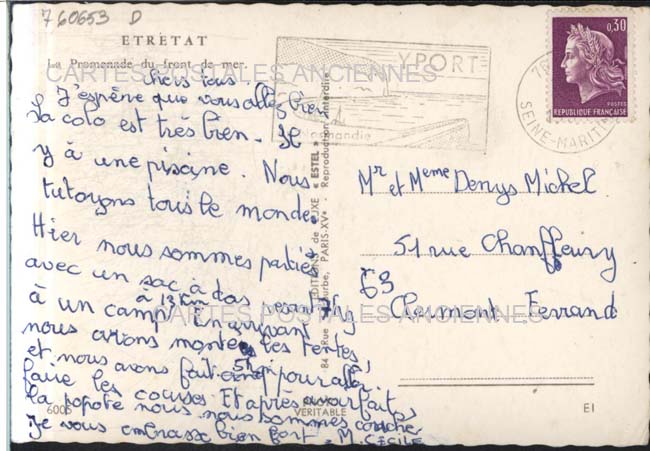 760653 D
ETRETAT
La Promenade du front de mer.
CARTES POSTALES ANCIENNES
YPORT
Normandie
0,30
POSTES
REPUBLIQUE FRANÇAISE
76
SEINE-MARITIME
chers tous
J'espère que vous allez bien
La colo est très bien. Il
y à une piscine. Nous
tutoyons tous le monde.
Hier nous sommes parties
avec un sac à dos
à un camp à 13 km En arrivant
nous avons monté les tentes
et nous avons fait pour aller
faire les courses. Et après avoir fait
la popote nous nous sommes coucher
Je vous embrasse bien fort. M. CÉCILE
EDITIONS de LUXE « ESTEL »
84, Rue Lecourbe, PARIS-XVe - Reproduction interdite
Mr et Meme Denys Michel
51 rue Chanffeury
63
Clermont Ferrand
CARTES POSTALES ANCIENNES
6005
VERITABLE
EI